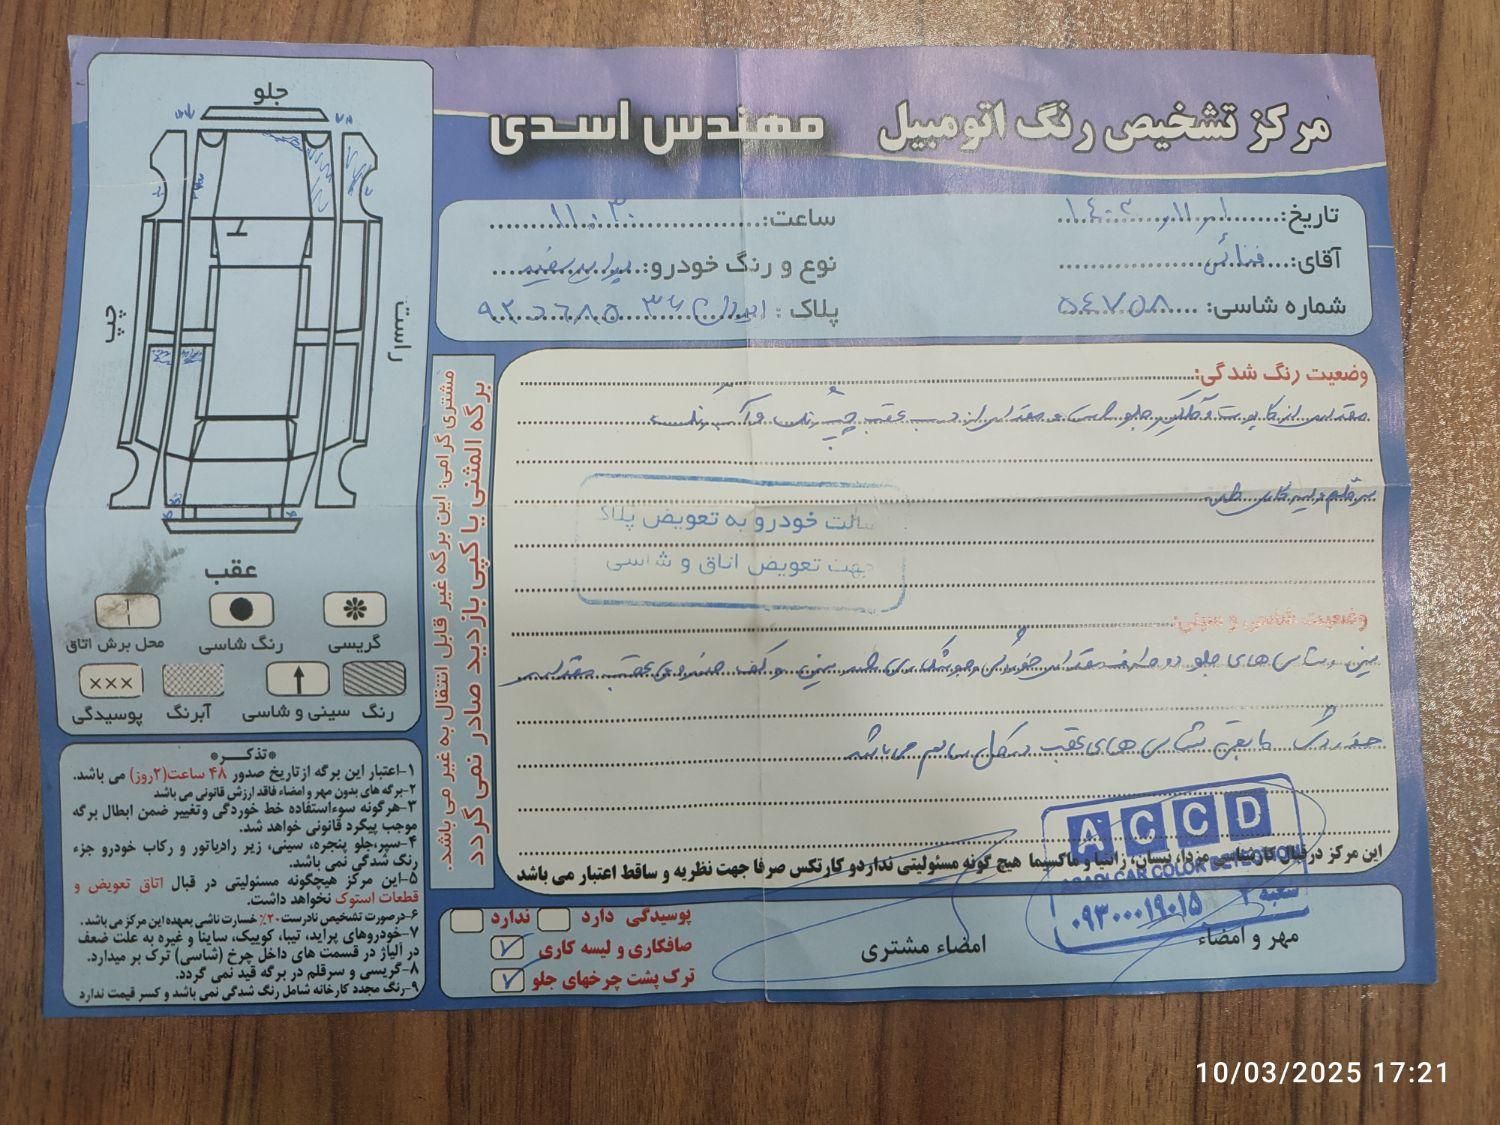 مرکز تشخیص رنگ اتومبیل مهندس اسدی
تاریخ:
ساعت: ۱۱:۳۰
آقای: فنائی
نوع و رنگ خودرو: پراید سفید
شماره شاسی: ۵۴۷۵۸
پلاک: ایران ۳۶
وضعیت رنگ شدگی:
مقداری از کاپوت و گلگیر جلو راست و مقداری از درب عقب چپ رنگ و آبرنگ
الت خودرو به تعویض پلاک
جهت تعویض اتاق و شاسی
وضعیت شاسی و سینی:
عقب مقداری
مابقی شاسی های عقب سالم می باشد
این مرکز در قبال کارشناسی مزدا، نیسان، زانتیا و ماکسیما هیچ گونه مسئولیتی ندارد و کارتکس صرفا جهت نظریه و ساقط اعتبار می باشد
A C C D
ASADI CAR COLOR DETECTION
شعبه ۲
۰۹۳۰۰۰۱۹۰۱۵
مهر و امضاء
امضاء مشتری
پوسیدگی دارد ندارد
صافکاری و لیسه کاری
ترک پشت چرخهای جلو
مشتری گرامی: این برگه غیر قابل انتقال به غیر می باشد.
برگه المثنی یا کپی بازدید صادر نمی گردد
جلو
چپ
راست
عقب
گریسی
رنگ شاسی
محل برش اتاق
رنگ
سینی و شاسی
آبرنگ
پوسیدگی
*تذکر*
۱-اعتبار این برگه از تاریخ صدور ۴۸ ساعت(۲روز) می باشد.
۲-برگه های بدون مهر و امضاء فاقد ارزش قانونی می باشد
۳-هرگونه سوءاستفاده خط خوردگی وتغییر ضمن ابطال برگه
موجب پیگرد قانونی خواهد شد.
۴-سپر،جلو پنجره، سینی، زیر رادیاتور و رکاب خودرو جزء
رنگ شدگی نمی باشد.
۵-این مرکز هیچگونه مسئولیتی در قبال اتاق تعویض و
قطعات استوک نخواهد داشت.
۶-درصورت تشخیص نادرست ۲۰٪ خسارت ناشی بعهده این مرکز می باشد.
۷-خودروهای پراید، تیبا، کوییک، ساینا و غیره به علت ضعف
در آلیاژ در قسمت های داخل چرخ (شاسی) ترک بر میدارد.
۸-گریسی و سرقلم در برگه قید نمی گردد.
۹-رنگ مجدد کارخانه شامل رنگ شدگی نمی باشد و کسر قیمت ندارد
10/03/2025 17:21